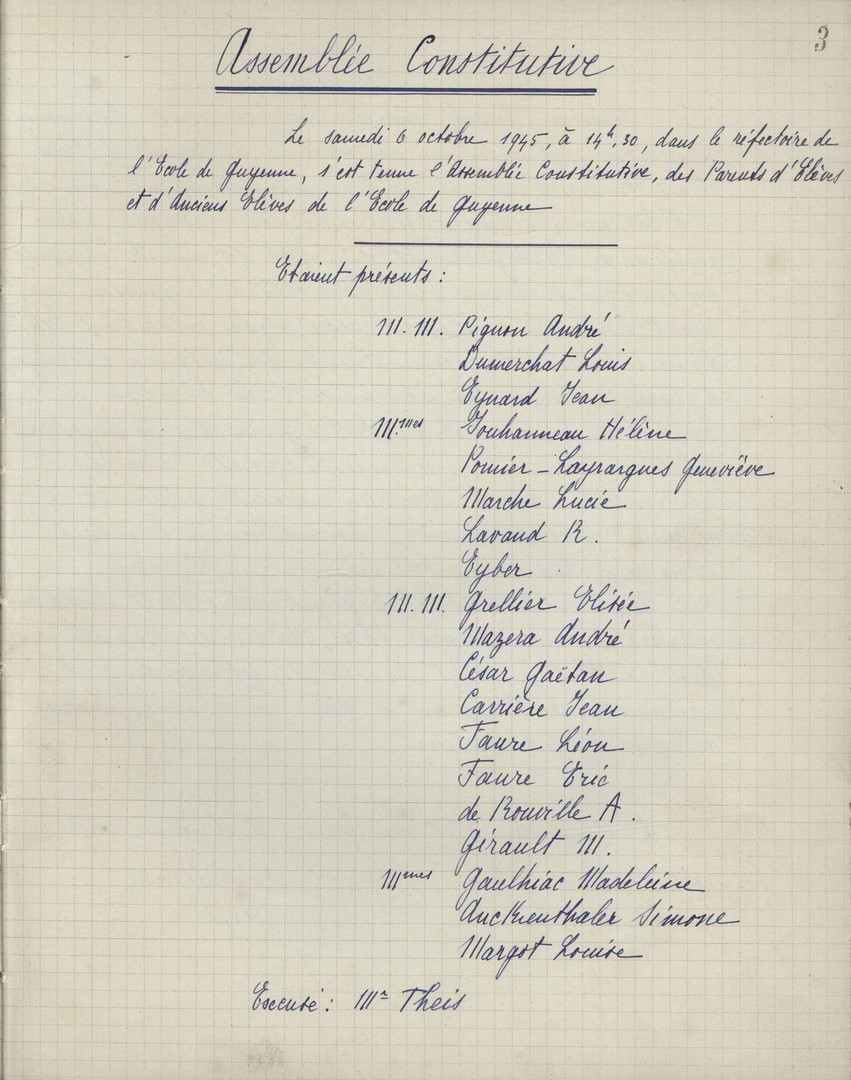 3
Assemblée Constitutive
Le samedi 6 octobre 1945, à 14h,30, dans le réfectoire de
l'Ecole de Guyenne, s'est tenue l'Assemblée Constitutive, des Parents d'Elèves
et d'Anciens Elèves de l'Ecole de Guyenne
Etaient présents :
M. M. Pignon André
Dumerchat Louis
Eynard Jean
M.mes Gouhanneau Hélène
Pomier - Layrargues Geneviève
Marche Lucie
Lavaud R.
Eyber
M. M. Grellier Elisée
Mazera André
César Gaëtan
Carrière Jean
Faure Léon
Faure Eric
de Rouville A.
Girault M.
Mmes Gaulhiac Madeleine
Auckenthaler Simone
Margot Louise
Excusé : Mr Theis